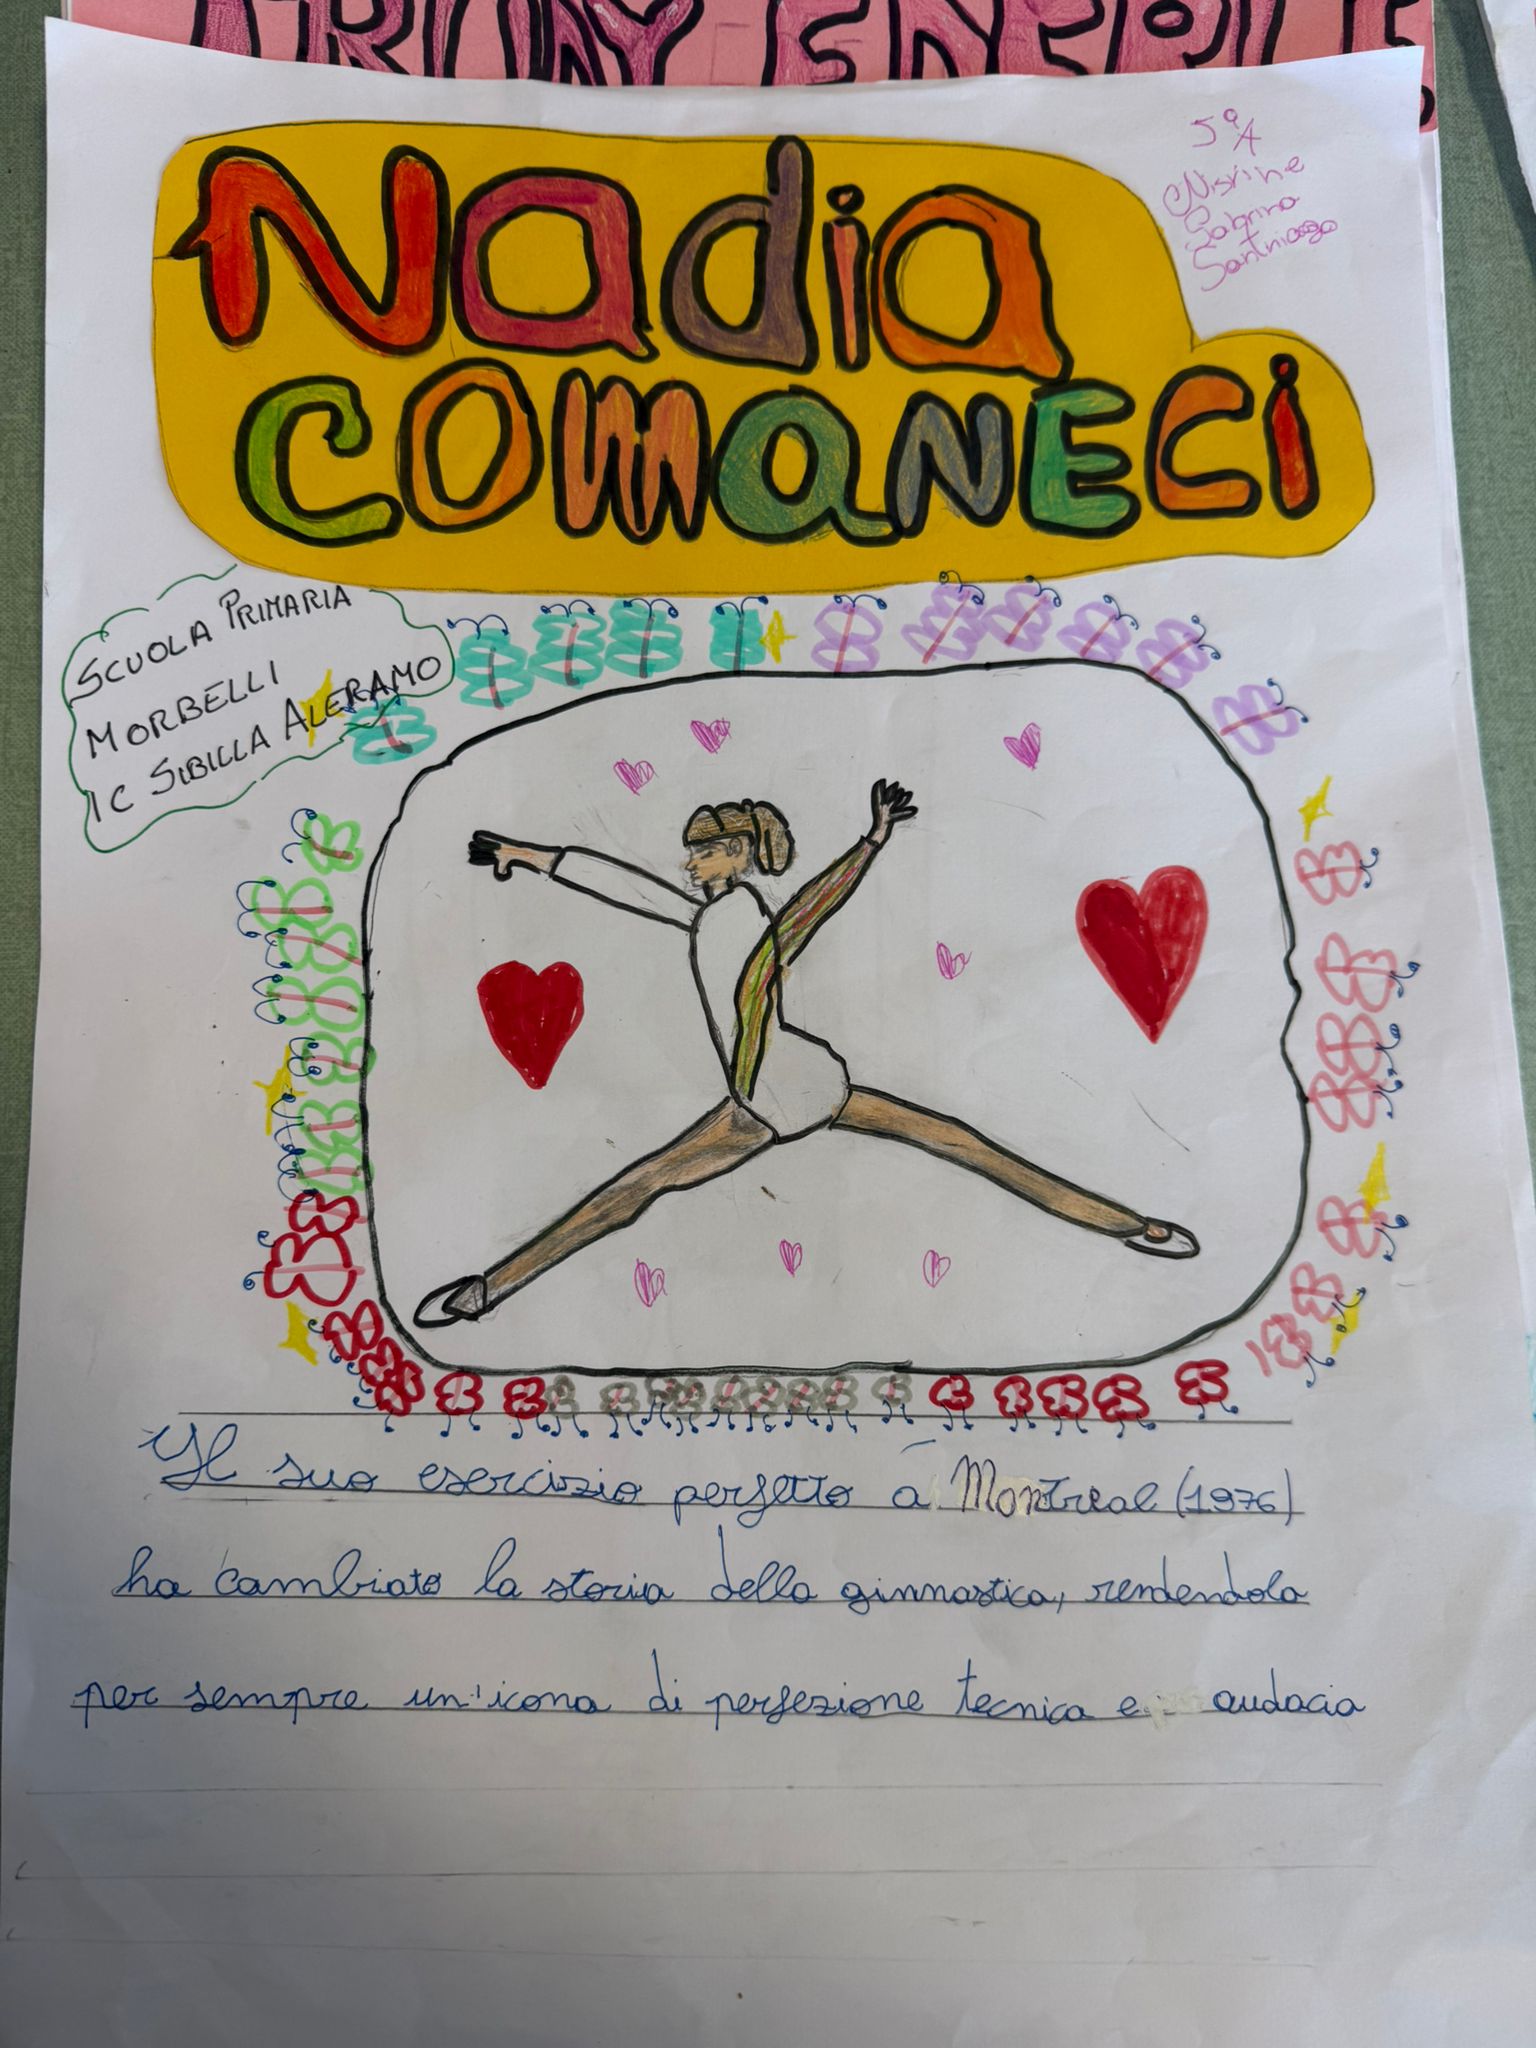 5ªA
Nisrine
Sabrina
Nadia
COMANECI
SCUOLA PRIMARIA
MORBELLI
IC SIBILLA ALERAMO
Il suo esercizio perfetto a Montreal (1976)
ha cambiato la storia della ginnastica, rendendola
per sempre un'icona di perfezione tecnica e audacia